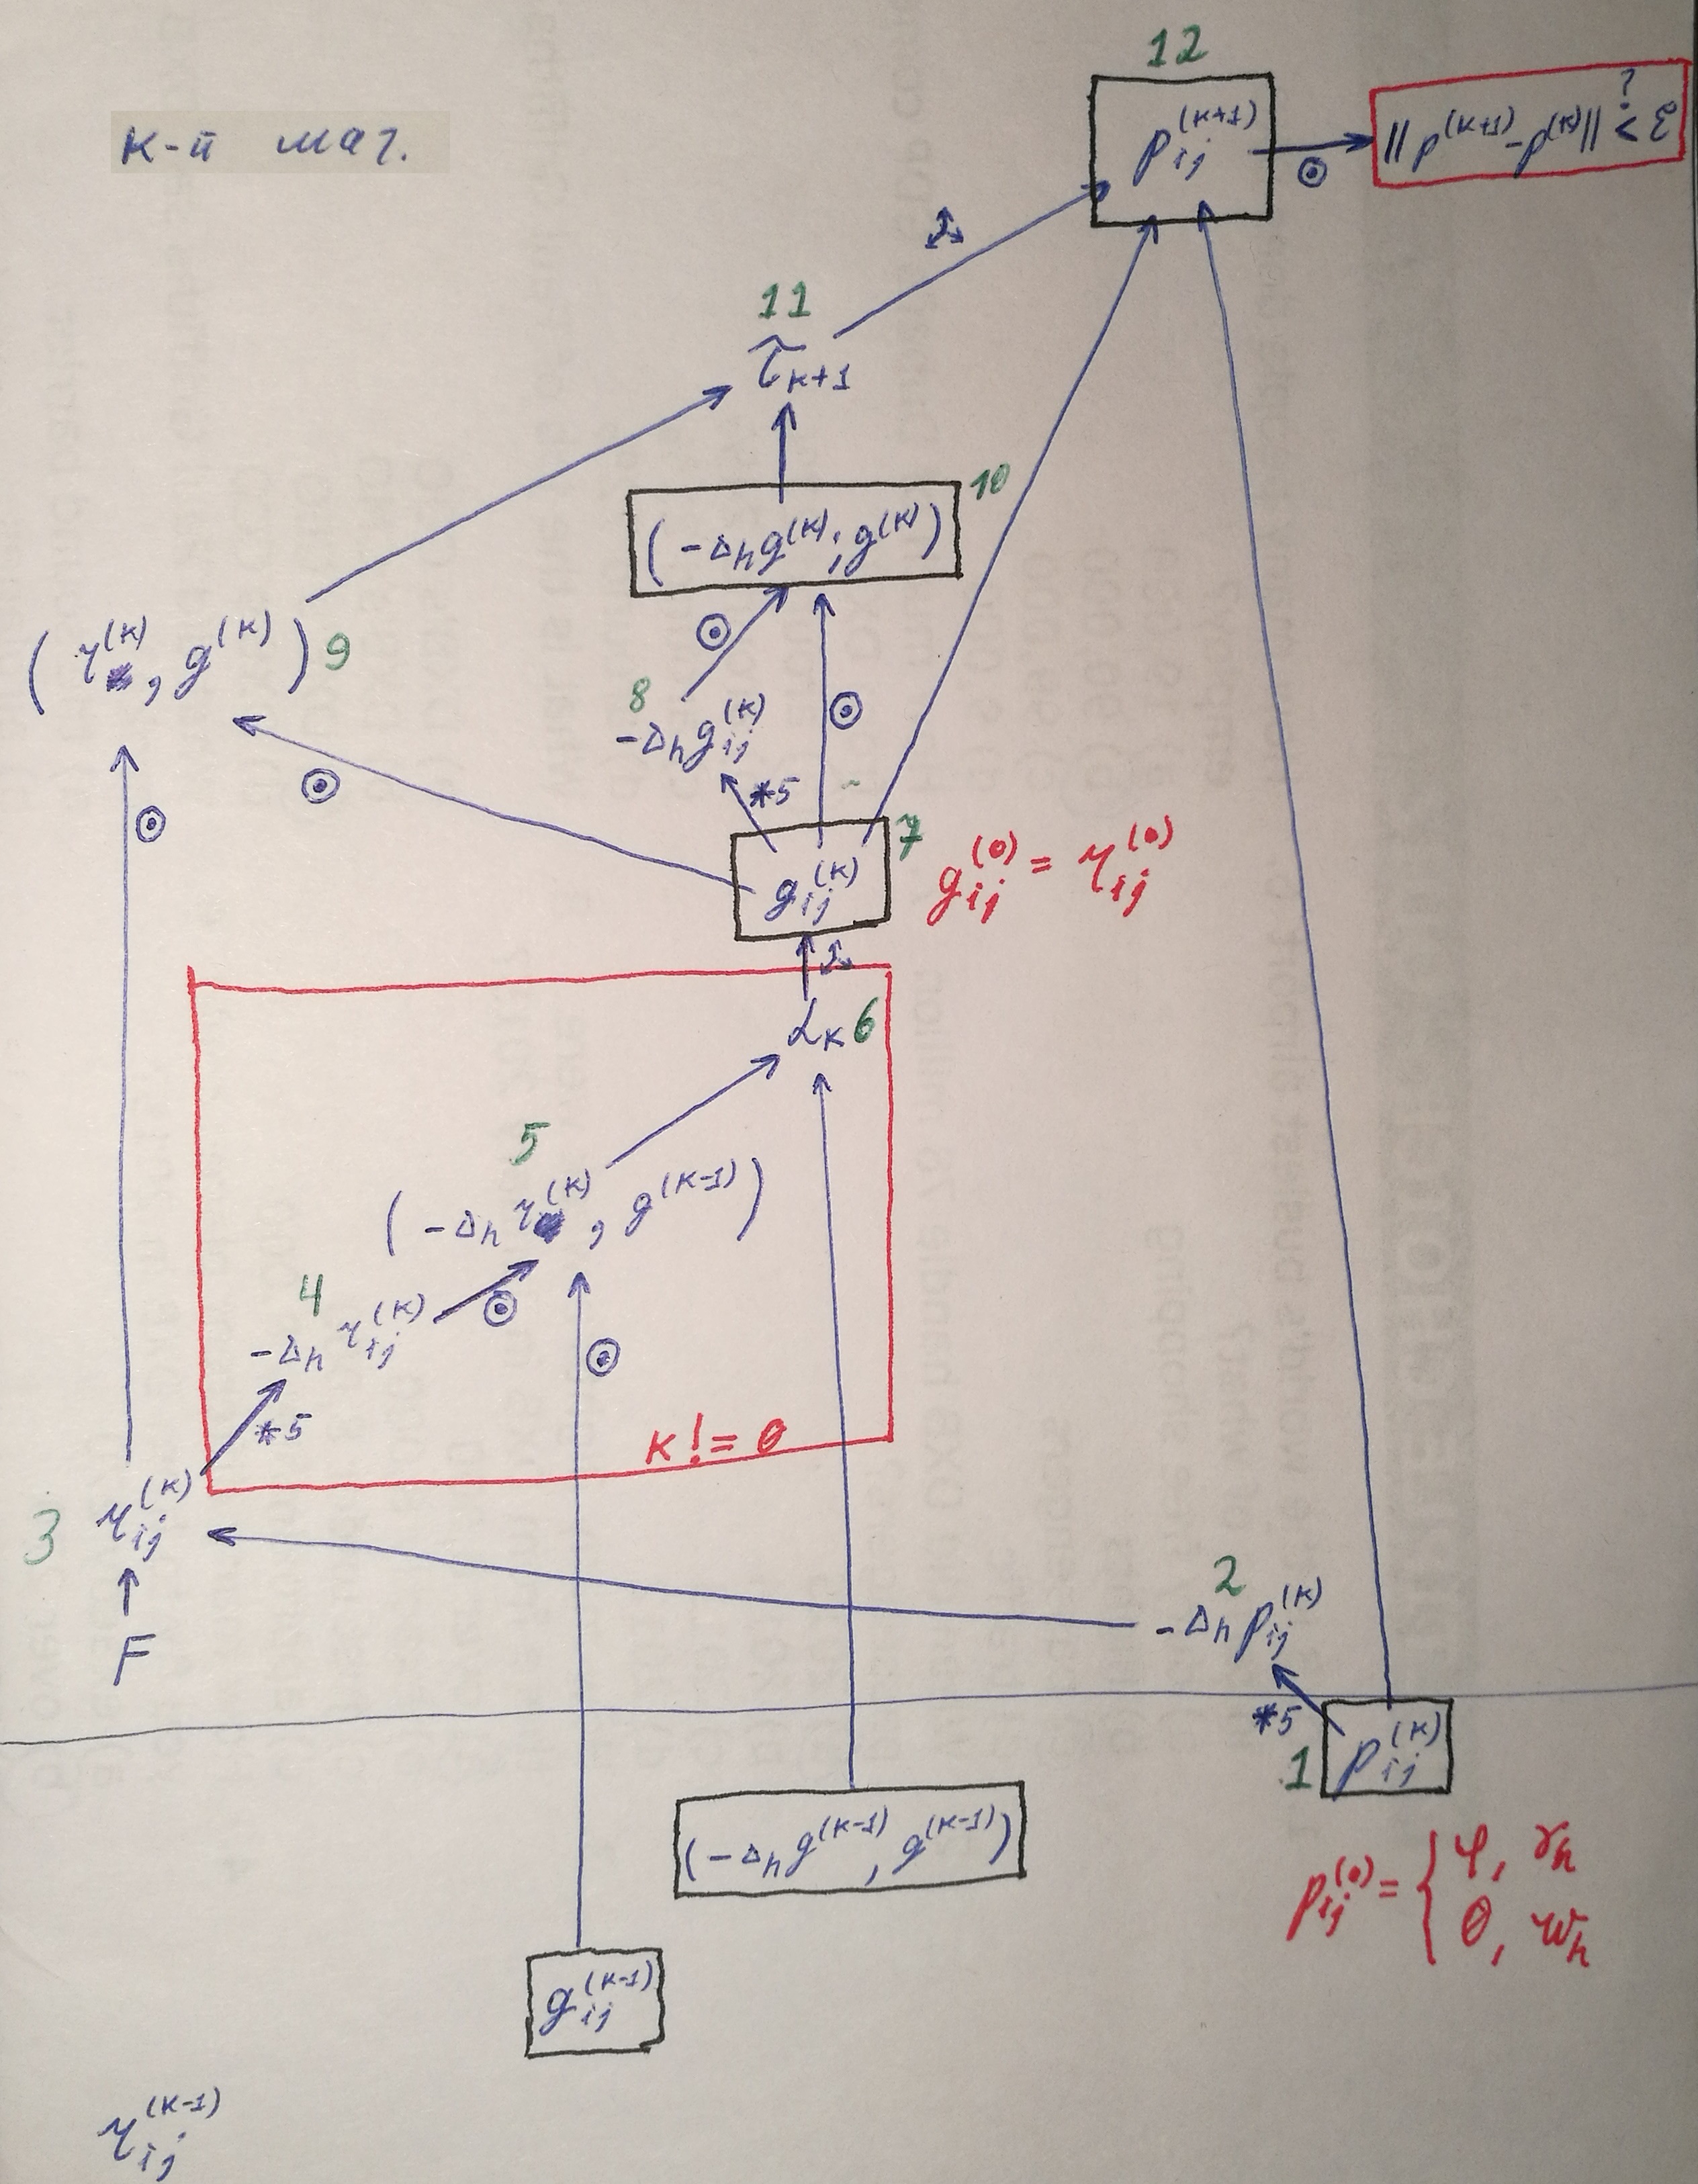 12
p_{ij}^{(k+1)}
|| p^{(k+1)} - p^{(k)} || < ε
?
к-й шаг.
11
τ_{k+1}
10
(-Δ_h g^{(k)}; g^{(k)})
(r^{(k)}, g^{(k)}) 9
8
-Δ_h g_{ij}^{(k)}
*5
7
g_{ij}^{(k)}
g_{ij}^{(0)} = r_{ij}^{(0)}
α_k 6
5
(-Δ_h r^{(k)}, g^{(k-1)})
4
-Δ_h r_{ij}^{(k)}
*5
k != 0
3 r_{ij}^{(k)}
F
2
-Δ_h p_{ij}^{(k)}
*5
1 p_{ij}^{(k)}
(-Δ_h g^{(k-1)}, g^{(k-1)})
p_{ij}^{(0)} = { φ, γ_h
0, ω_h
g_{ij}^{(k-1)}
r_{ij}^{(k-1)}